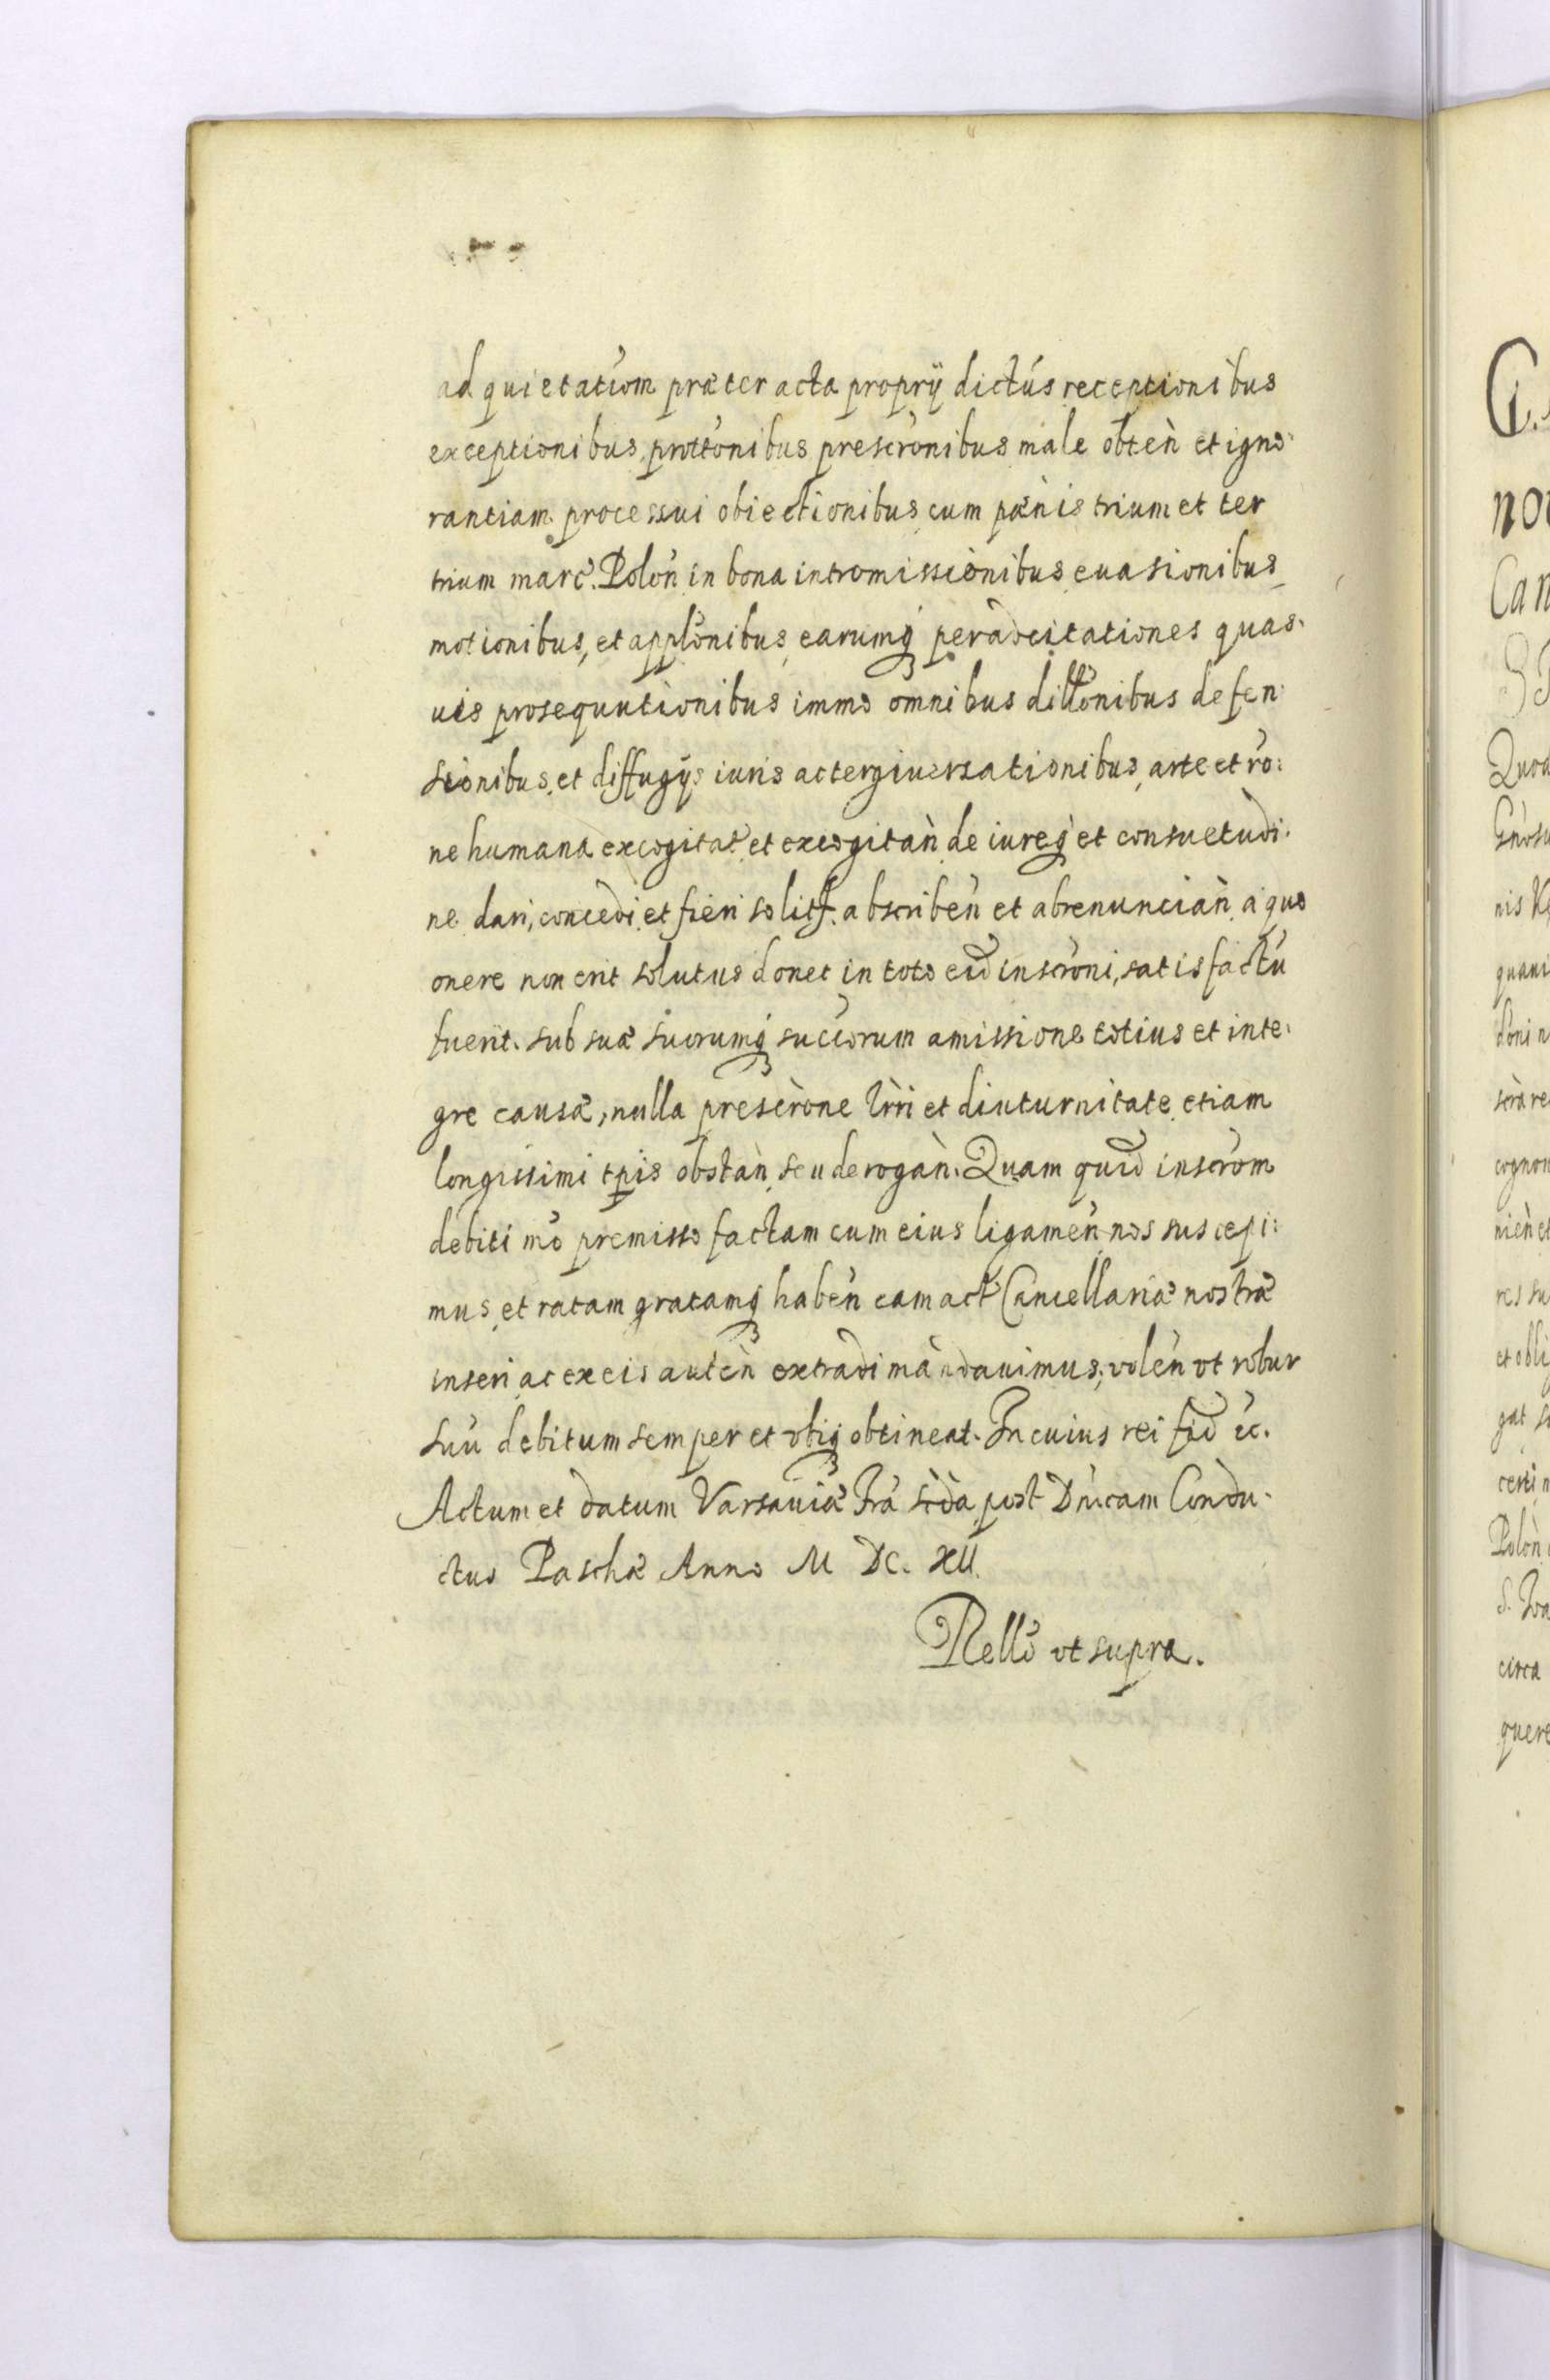 ad quietatiom præter acta proprÿ dictús receptionibus
exceptionibus, prottonibus prescronibus male obteǹ et igno:
rantiam processui obiectionibus cum pænis trium et ter
trium marc. Poloń in bona intromissionibus euasionibus
motionibus, et applonibus, earumq peradcitationes quas:
uis prosequutionibus immo omnibus dillonibus defen:
sionibus et diffugÿs iuris ac tergiuersationibus, arte et ro:
ne humana excogitat et excogitaǹ de iureq et consuetudi:
ne dari, concedi et fieri solit abscribeń et abrenunciaǹ a quo
onere non erit solutus donec in toto eid inscroni, satisfactú
fuerit. sub suæ suorumq succorum amissione totius et inte:
gre causæ, nulla prescrone trri et diuturnitate etiam
longissimi tpis obstaǹ seu derogaǹ. Quam quid inscrom
debiti mo premisso factam cum eius ligameń nos suscepi:
mus, et ratam gratamq habeń eam act Cancellariæ nostræ
inseri ac ex eis auteǹ extradi mandauimus, voleń vt robur
suú debitum semper et vbiq obtineat. In cuius rei fid ec.
Actum et datum Varsauiæ fra scda post Dnicam Condu:
ctus Paschæ Anno M DC. XII.
Rello vt supra.
G.
Can
Quod
nis
quam
cogno
res su
et obli
gat
certi
Poloǹ
circa
quere